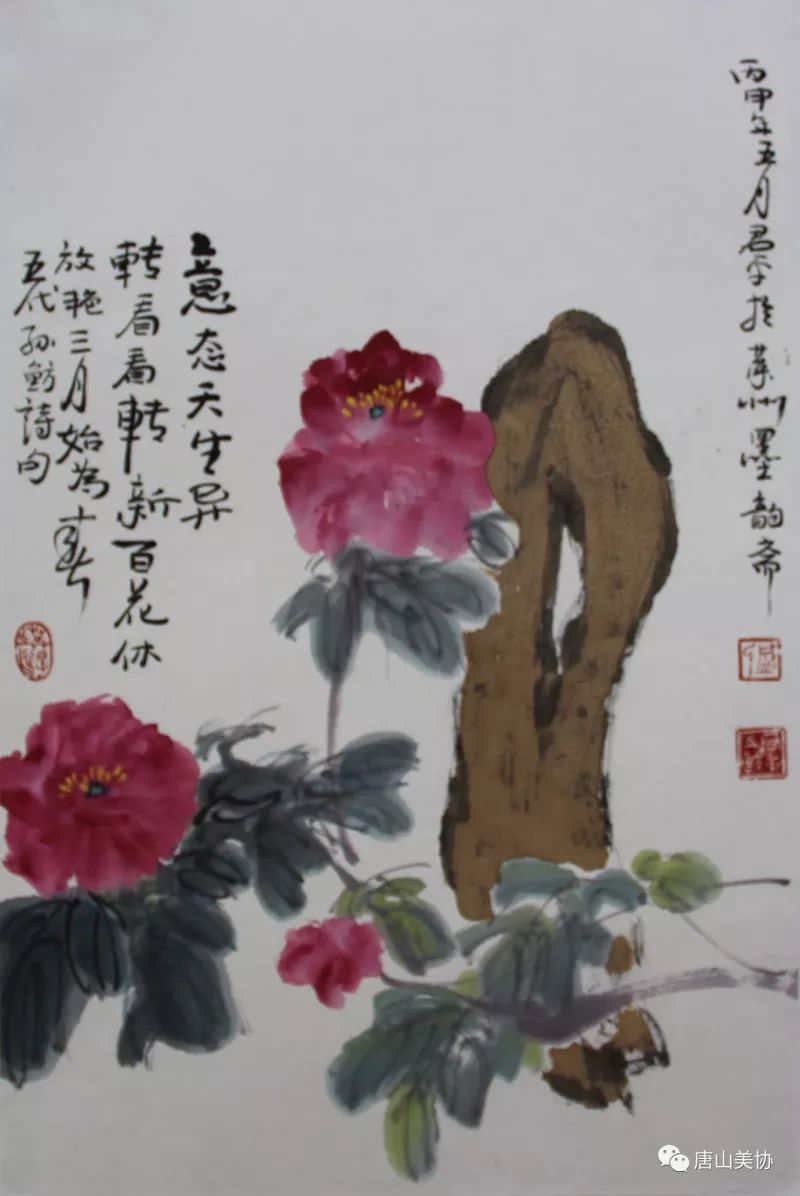 丙申年五月君平於州墨韵斋
意态天生异
轉看看轉新百花休
放艳三月始為春
五代孙鲂詩句
唐山美协